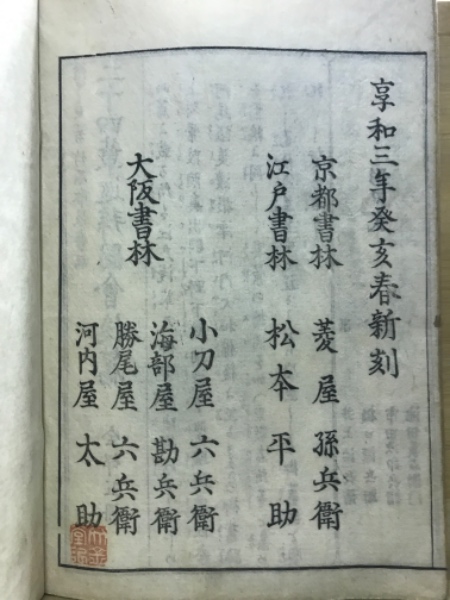 享和三年癸亥春新刻
京都書林 菱屋孫兵衛
江戸書林 松本平助
大阪書林
小刀屋六兵衛
海部屋勘兵衛
勝尾屋六兵衛
河内屋太助